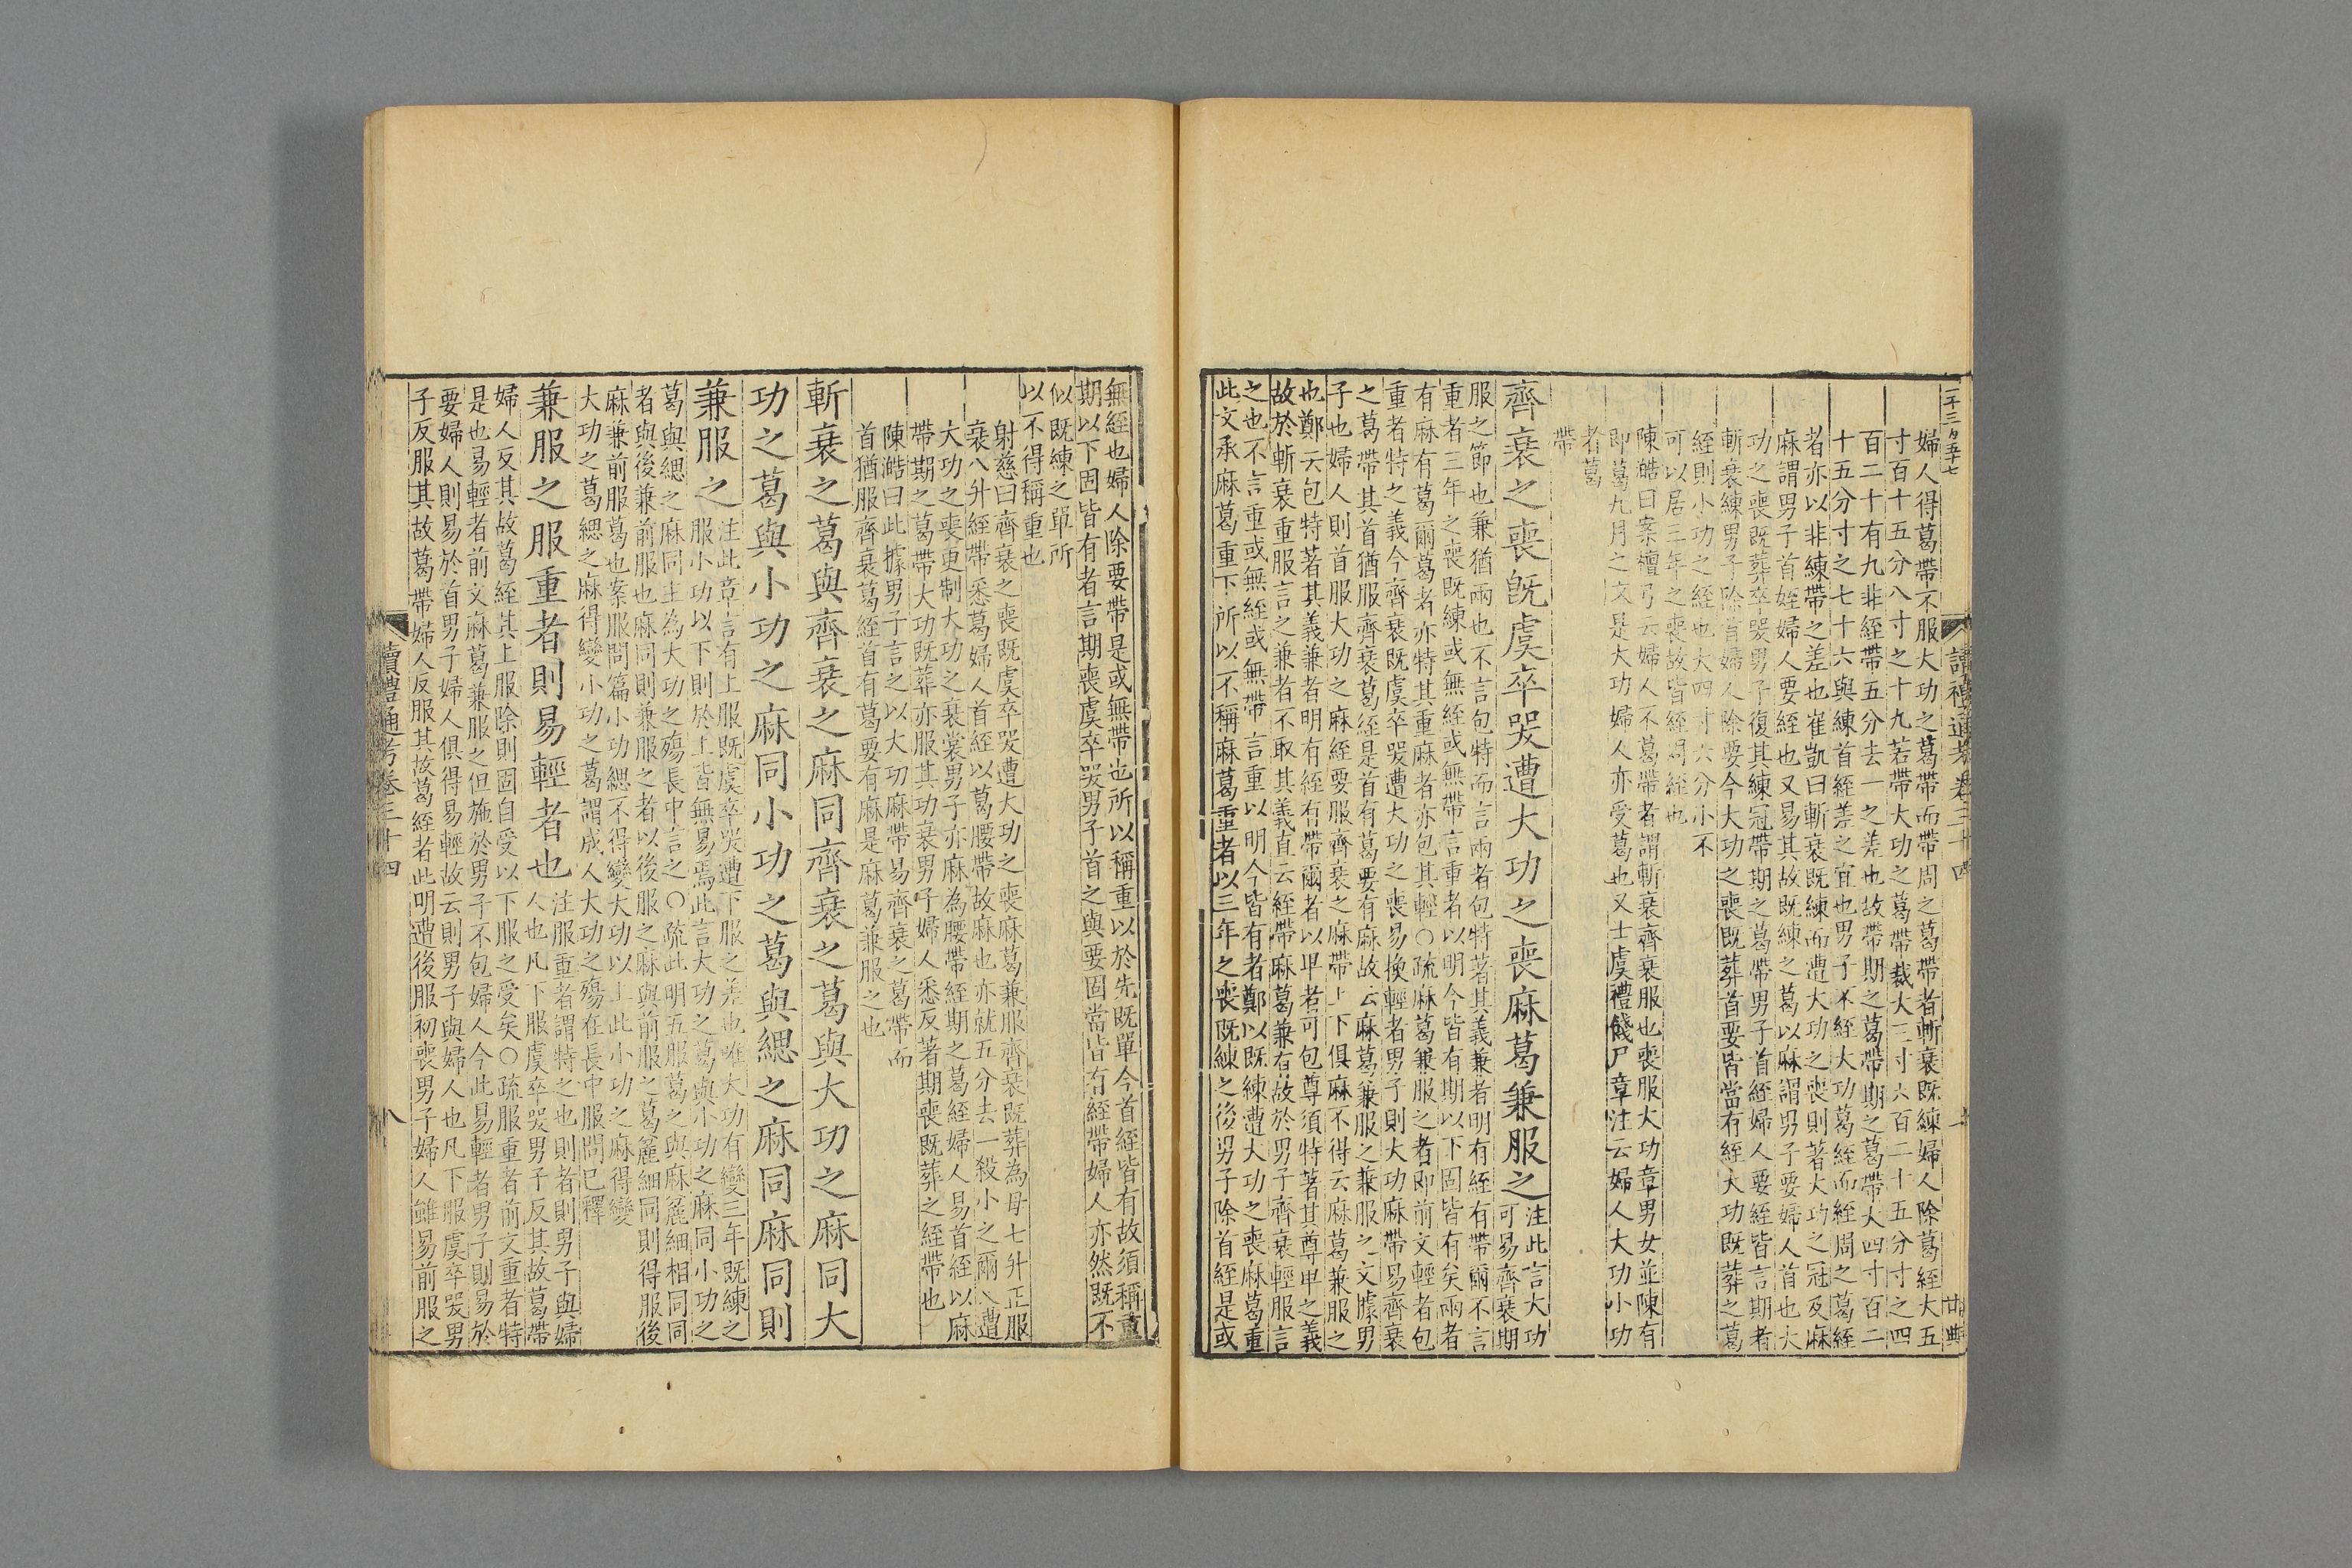 婦人得葛帶不服大功之葛帶而帶周之葛帶者斬衰既練婦人除葛絰大五
寸百十五分八寸之十九若帶大功之葛帶裁大三寸六百二十五分寸之四
百二十有九非絰帶五分去一之差也故帶期之葛帶期之葛帶大四寸百二
十五分寸之七十六與練首絰差之宜也男子不絰大功葛絰而絰周之葛絰
者亦以非練帶之差也崔凱曰斬衰既練而遭大功之喪則著大功之冠反麻
麻謂男子首絰婦人要絰也又易其故既練之葛以麻謂男子要婦人首也大
功之喪既葬卒哭男子復其練冠帶期之葛帶男子首絰婦人要絰皆言期者
斬衰練男子除首婦人除要今大功之喪既葬首要皆當有絰大功既葬之葛
絰則小功之絰也大四寸六分小不
可以居三年之喪故皆絰周絰也
陳皓曰案檀弓云婦人不葛帶者謂斬衰齊衰服也喪服大功章男女並陳有
即葛九月之文是大功婦人亦受葛也又士虞禮餞尸章注云婦人大功小功
者葛
帶
齊衰之喪既虞卒哭遭大功之喪麻葛兼服之
注此言大功
可易齊衰期
服之節也兼猶兩也不言包特而言兩者包特著其義兼者明有絰有帶爾不言
重者三年之喪既練或無絰或無帶言重者以明今皆有期以下固皆有矣兩者
有麻有葛爾葛者亦特其重麻者亦包其輕○疏麻葛兼服之者即前文輕者包
重者特之義今齊衰既虞卒哭遭大功之喪易換輕者男子則大功麻帶易齊衰
之葛帶其首猶服齊衰葛絰是首有葛要有麻故云麻葛兼服之兼服之文據男
子也婦人則首服大功之麻絰要服齊衰之麻帶上下俱麻不得云麻葛兼服之
也鄭云包特著其義兼者明有絰有帶爾者以卑者可包尊須特著其尊卑之義
故於斬衰重服言之兼者不取其義直云絰帶麻葛兼有故於男子齊衰輕服言
之也不言重或無絰或無帶言重以明今皆有者鄭以既練遭大功之喪麻葛重
此文承麻葛重下所以不稱麻葛重者以三年之喪既練之後男子除首絰是或
無絰也婦人除要帶是或無帶也所以稱重以於先既單今首絰皆有故須稱重
期以下固皆有者言期喪虞卒哭男子首之與要固當皆有絰帶婦人亦然既不
似既練之單所
以不得稱重也
射慈曰齊衰之喪既虞卒哭遭大功之喪麻葛兼服齊衰既葬為母七升正服
衰八升絰帶悉葛婦人首絰以葛腰帶故麻也亦就五分去一殺小之爾以遭
大功之喪更制大功之衰裳男子亦麻為腰帶絰期之葛絰婦人易首絰以麻
帶期之葛帶大功既葬亦服其功衰男子婦人悉反著期喪既葬之絰帶也
陳澔曰此據男子言之以大功麻帶易齊衰之葛帶而
首猶服齊衰葛絰首有葛要有麻是麻葛兼服之也
斬衰之葛與齊衰之麻同齊衰之葛與大功之麻同大
功之葛與小功之麻同小功之葛與緦之麻同麻同則
兼服之
注此章言有上服既虞卒哭遭下服之差也唯大功有變三年既練之
服小功以下則於上皆無易焉此言大功之葛與小功之麻同小功之
葛與緦之麻同主為大功之殤長中言之○疏此明五服葛之與麻麤細相同同
者與後兼前服也麻同則兼服之者以後服之麻與前服之葛麤細同則得服後
麻兼前服葛也案服問篇小功緦不得變大功以上此小功之麻得變
大功之葛緦之麻得變小功之葛謂成人大功之殤在長中服問已釋
兼服之服重者則易輕者也
注服重者謂特之也則者則男子與婦
人也凡下服虞卒哭男子反其故葛帶
婦人反其故葛絰其上服除則固自受以下服之受矣○疏服重者前文重者特
是也易輕者前文麻葛兼服之但施於男子不包婦人今此易輕者男子則易於
要婦人則易於首男子婦人俱得易輕故云則男子與婦人也凡下服虞卒哭男
子反服其故葛帶婦人反服其故葛絰者此明遭後服初喪男子婦人雖易前服之
讀禮通考卷三十四
八